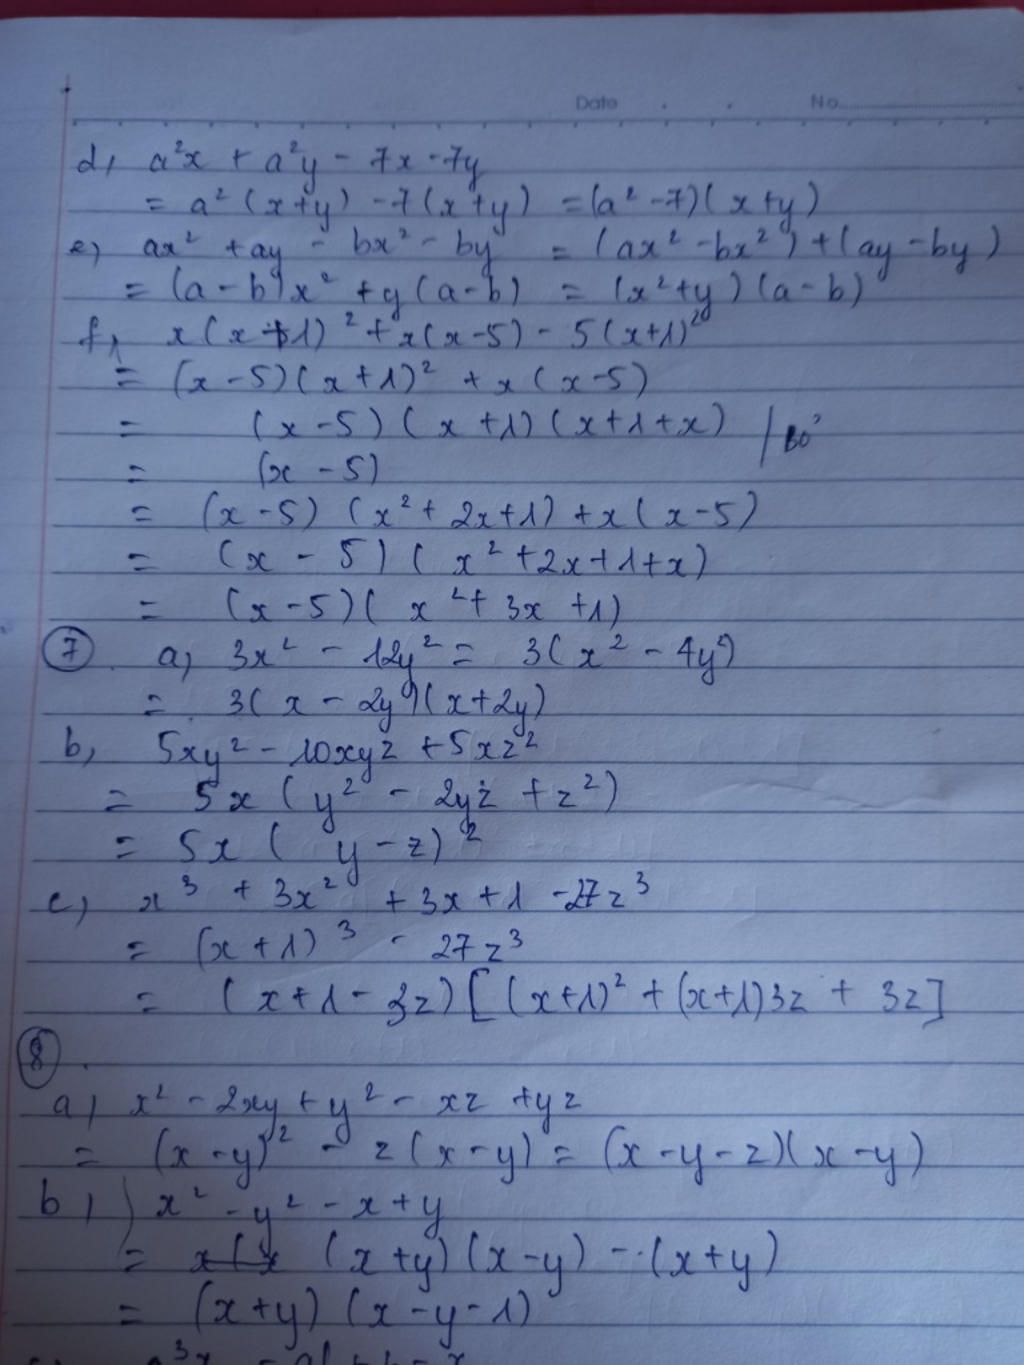 Date . . No
d, a²x + a²y - 7x - 7y
= a² (x+y) - 7(x+y) = (a² - 7)(x+y)
e, ax² + ay - bx² - by = (ax² - bx²) + (ay - by)
= (a - b)x² + y(a - b) = (x² + y)(a - b)
f, x(x+1)² + x(x-5) - 5(x+1)²
= (x-5)(x+1)² + x(x-5)
= (x-5)(x+1)(x+1+x) /
= (x-5)
= (x-5)(x² + 2x+1) + x(x-5)
= (x - 5)(x² + 2x+1+x)
= (x-5)(x² + 3x + 1)
7 . a, 3x² - 12y² = 3(x² - 4y²)
= 3(x - 2y)(x+2y)
b, 5xy² - 10xyz + 5xz²
= 5x (y² - 2yz + z²)
= 5x (y - z)²
c, x³ + 3x² + 3x + 1 - 27z³
= (x+1)³ - 27z³
= (x+1 - 3z)[(x+1)² + (x+1)3z + 3z]
8 .
a, x² - 2xy + y² - xz + yz
= (x-y)² - z(x-y) = (x-y-z)(x-y)
b, x² - y² - x + y
= x(x (x+y)(x-y) - (x+y)
= (x+y)(x-y-1)